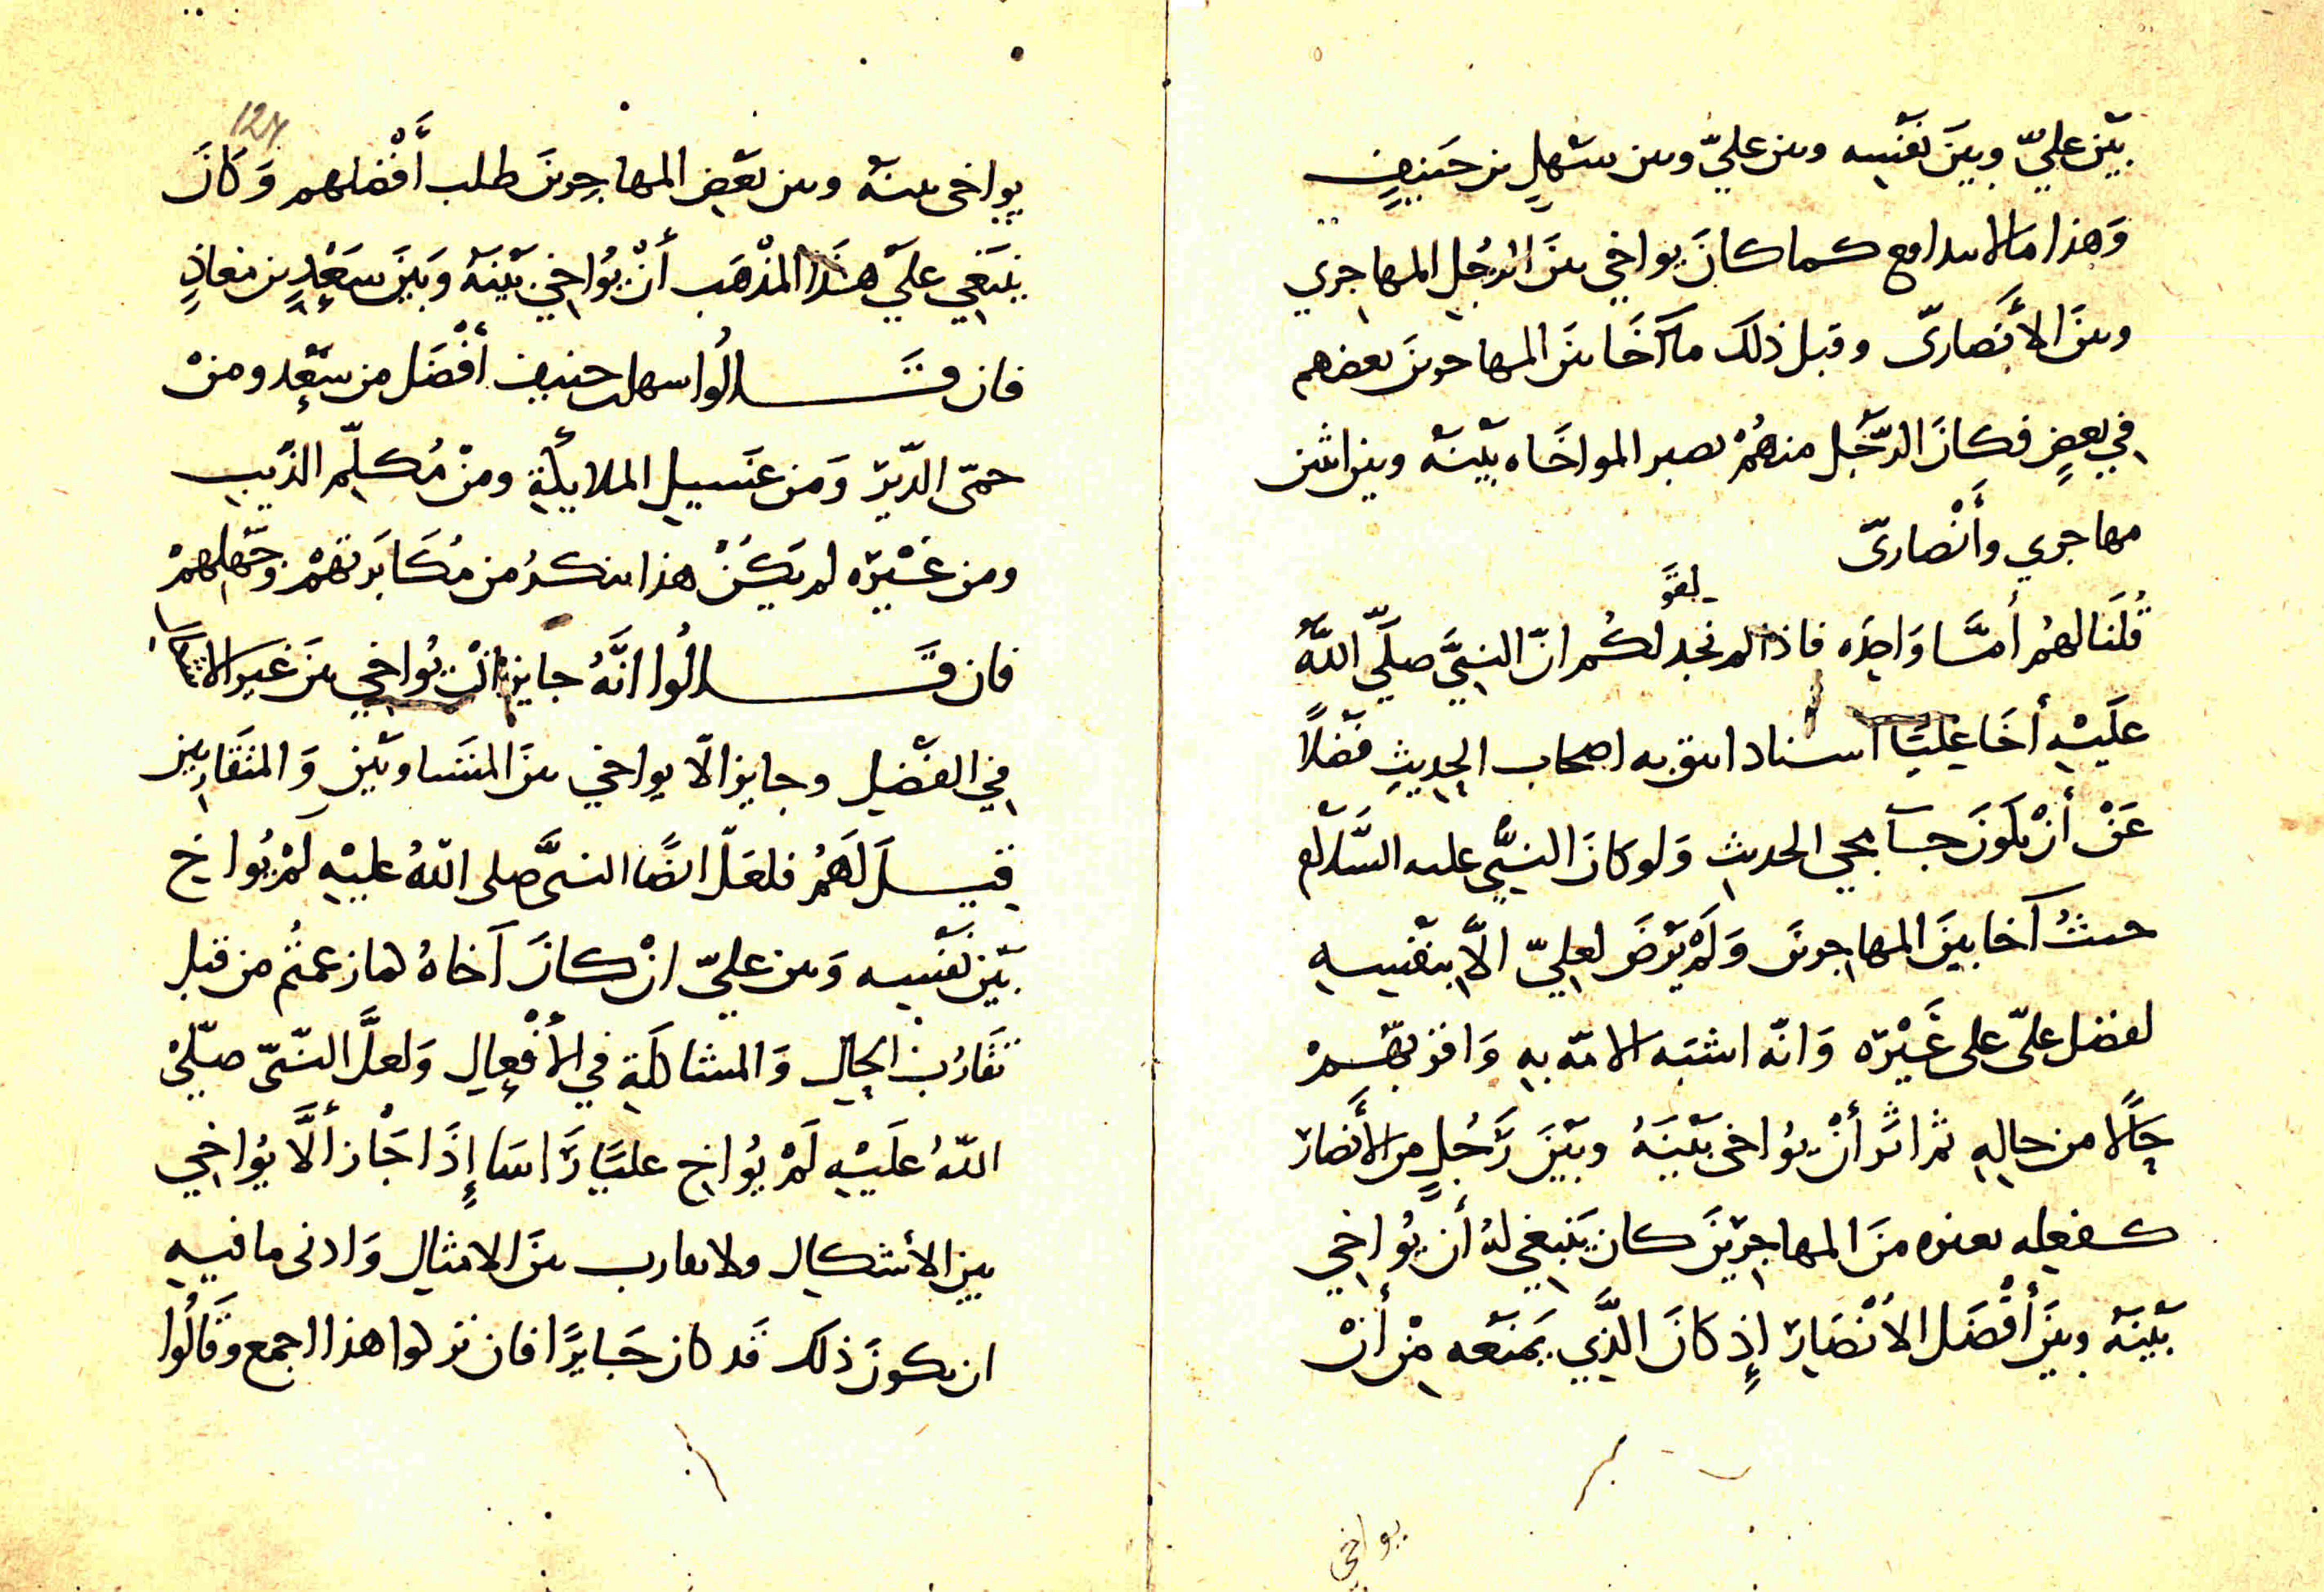 بَيْن عليّ وبينَ نَفْسِه وبين عليّ وبين سَهْلِ بن حَنيفٍ
وَهذا مَالا يدافع كما كانَ يواخي بينَ الرجُلِ المهاجري
وبينَ الأنصاريّ وقبل ذلك ما آخَا بينَ المهاجرينَ بعضهم
في بعضٍ فكانَ الرّجُل منهُمْ تصير المواخَاه بَيْنَهُ وبين اثنين
مهاجري وأنْصاريّ
لقو
قُلنَا لهُمْ أمّا وَاحِدَه فاذا لم نجد لكم انّ النبيَّ صلّى اللهُ
عَلَيْهِ أخَا عليًّا اسنادا يثق به اصحاب الحديثِ فضْلاً
عَنْ أنْ يكونَ جآ مجي الحديثِ وَلو كانَ النبيّ عليه السّلام
حيثُ آخا بينَ المهاجرين وَلَمْ يَرْضَ لعليّ الاّ بنفْسِهِ
لفضل عليّ على غَيْرِه وَانّه اشبَه الامّة بهِ وَاقربهُمْ
حَالًا من حالِهِ ثم اثر أنْ يُواخي بَيْنَهُ وبَيْنَ رَجُلٍ من الأنصار
كفعله بغيره منَ المهاجرِينَ كان يَنبغي لهُ أن يُواخي
بَيْنَهُ وبينَ أفْضَل الأنْصَارِ إذ كانَ الَّذِي يَمنَعه مِنْ أنْ
يواخي
124
يواخي بينَهُ وبين بَعْض المهاجِرينَ طلب أَفْضلهم وَكَانَ
يَنبَغي علَي هَذَا المذْهَب أنْ يُواخيَ بَيْنَهُ وَبَيْنَ سَعْدِ بن معاذٍ
فان قَالُوا سهل بن حنيف أفْضَل من سَعْد ومنْ
حمّى الدّبْرِ وَمن غَسيلِ الملايكَةِ ومنْ مُكلِّم الذّيبِ
ومن غَيْرِه لم يَكُنْ هذا ينكرُ من مُكَابَرتهِمْ وَجَهلِهمْ
فان قَالُوا انَّهُ جايزٌ انْ يُواخي بينَ غيرِ الاشكال
في الفَضْلِ وجايز الاّ يواخي بينَ المتسَاويَيْنِ وَالمتَقَاربين
قيلَ لَهُمْ فلعَلّ ايضًا النبيَّ صلى اللهُ عليْهِ لَمْ يُواخ
بَيْن نَفْسِه وَبين عليّ انْ كانَ آخاهُ لما زعمتُم من قبل
تقَارُب الحالِ وَالمشاكلَةِ في الأَفْعالِ وَلعلَّ النّبيّ صلّى
اللهُ علَيْهِ لَمْ يُواخ عليًّا رَاسًا إذَا جَازَ ألَّا يُواخِي
بين الأشكالِ ولا يقارب بينَ الامثالِ وَادنى ما فيهِ
ان يكونَ ذلك قَد كان جَايزًا فان تركوا هذا اجمع وقَالُوا